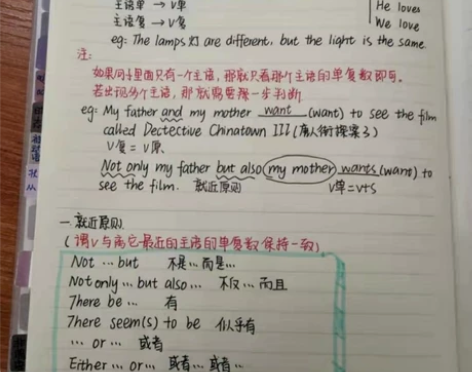 主语单 → V单
He loves
主语复 → V复
We love
eg: The lamps 灯 are different, but the light is the same
注:
如果句子里面只有一个主语，那就只看那个主语的单复数即可。
若出现多个主语，那就需要进一步判断
eg: My father and my mother want (want) to see the film
called Dectective Chinatown III (唐人街探案3)
V复=V原
Not only my father but also (my mother) wants (want) to
see the film. 就近原则 V单=V+s
一.就近原则.
(谓V与离它最近的主语的单复数保持一致)
Not … but 不是…而是…
Not only … but also … 不仅…而且
There be … 有
There seem(s) to be 似乎有
… or … 或者
Either … or … 或者…或者…